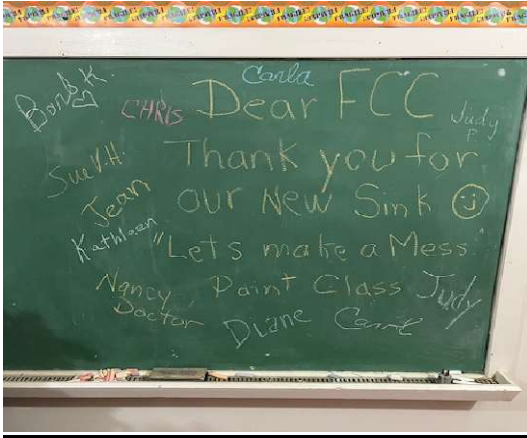 FRAGILE!
Carla
Barb K.
CHRIS
Dear FCC
Judy P
Thank you for
Sue V.H.
our New Sink
Jean
Kathleen
"Lets make a Mess
Nancy
Doctor
Paint Class
Judy
Diane
Carol